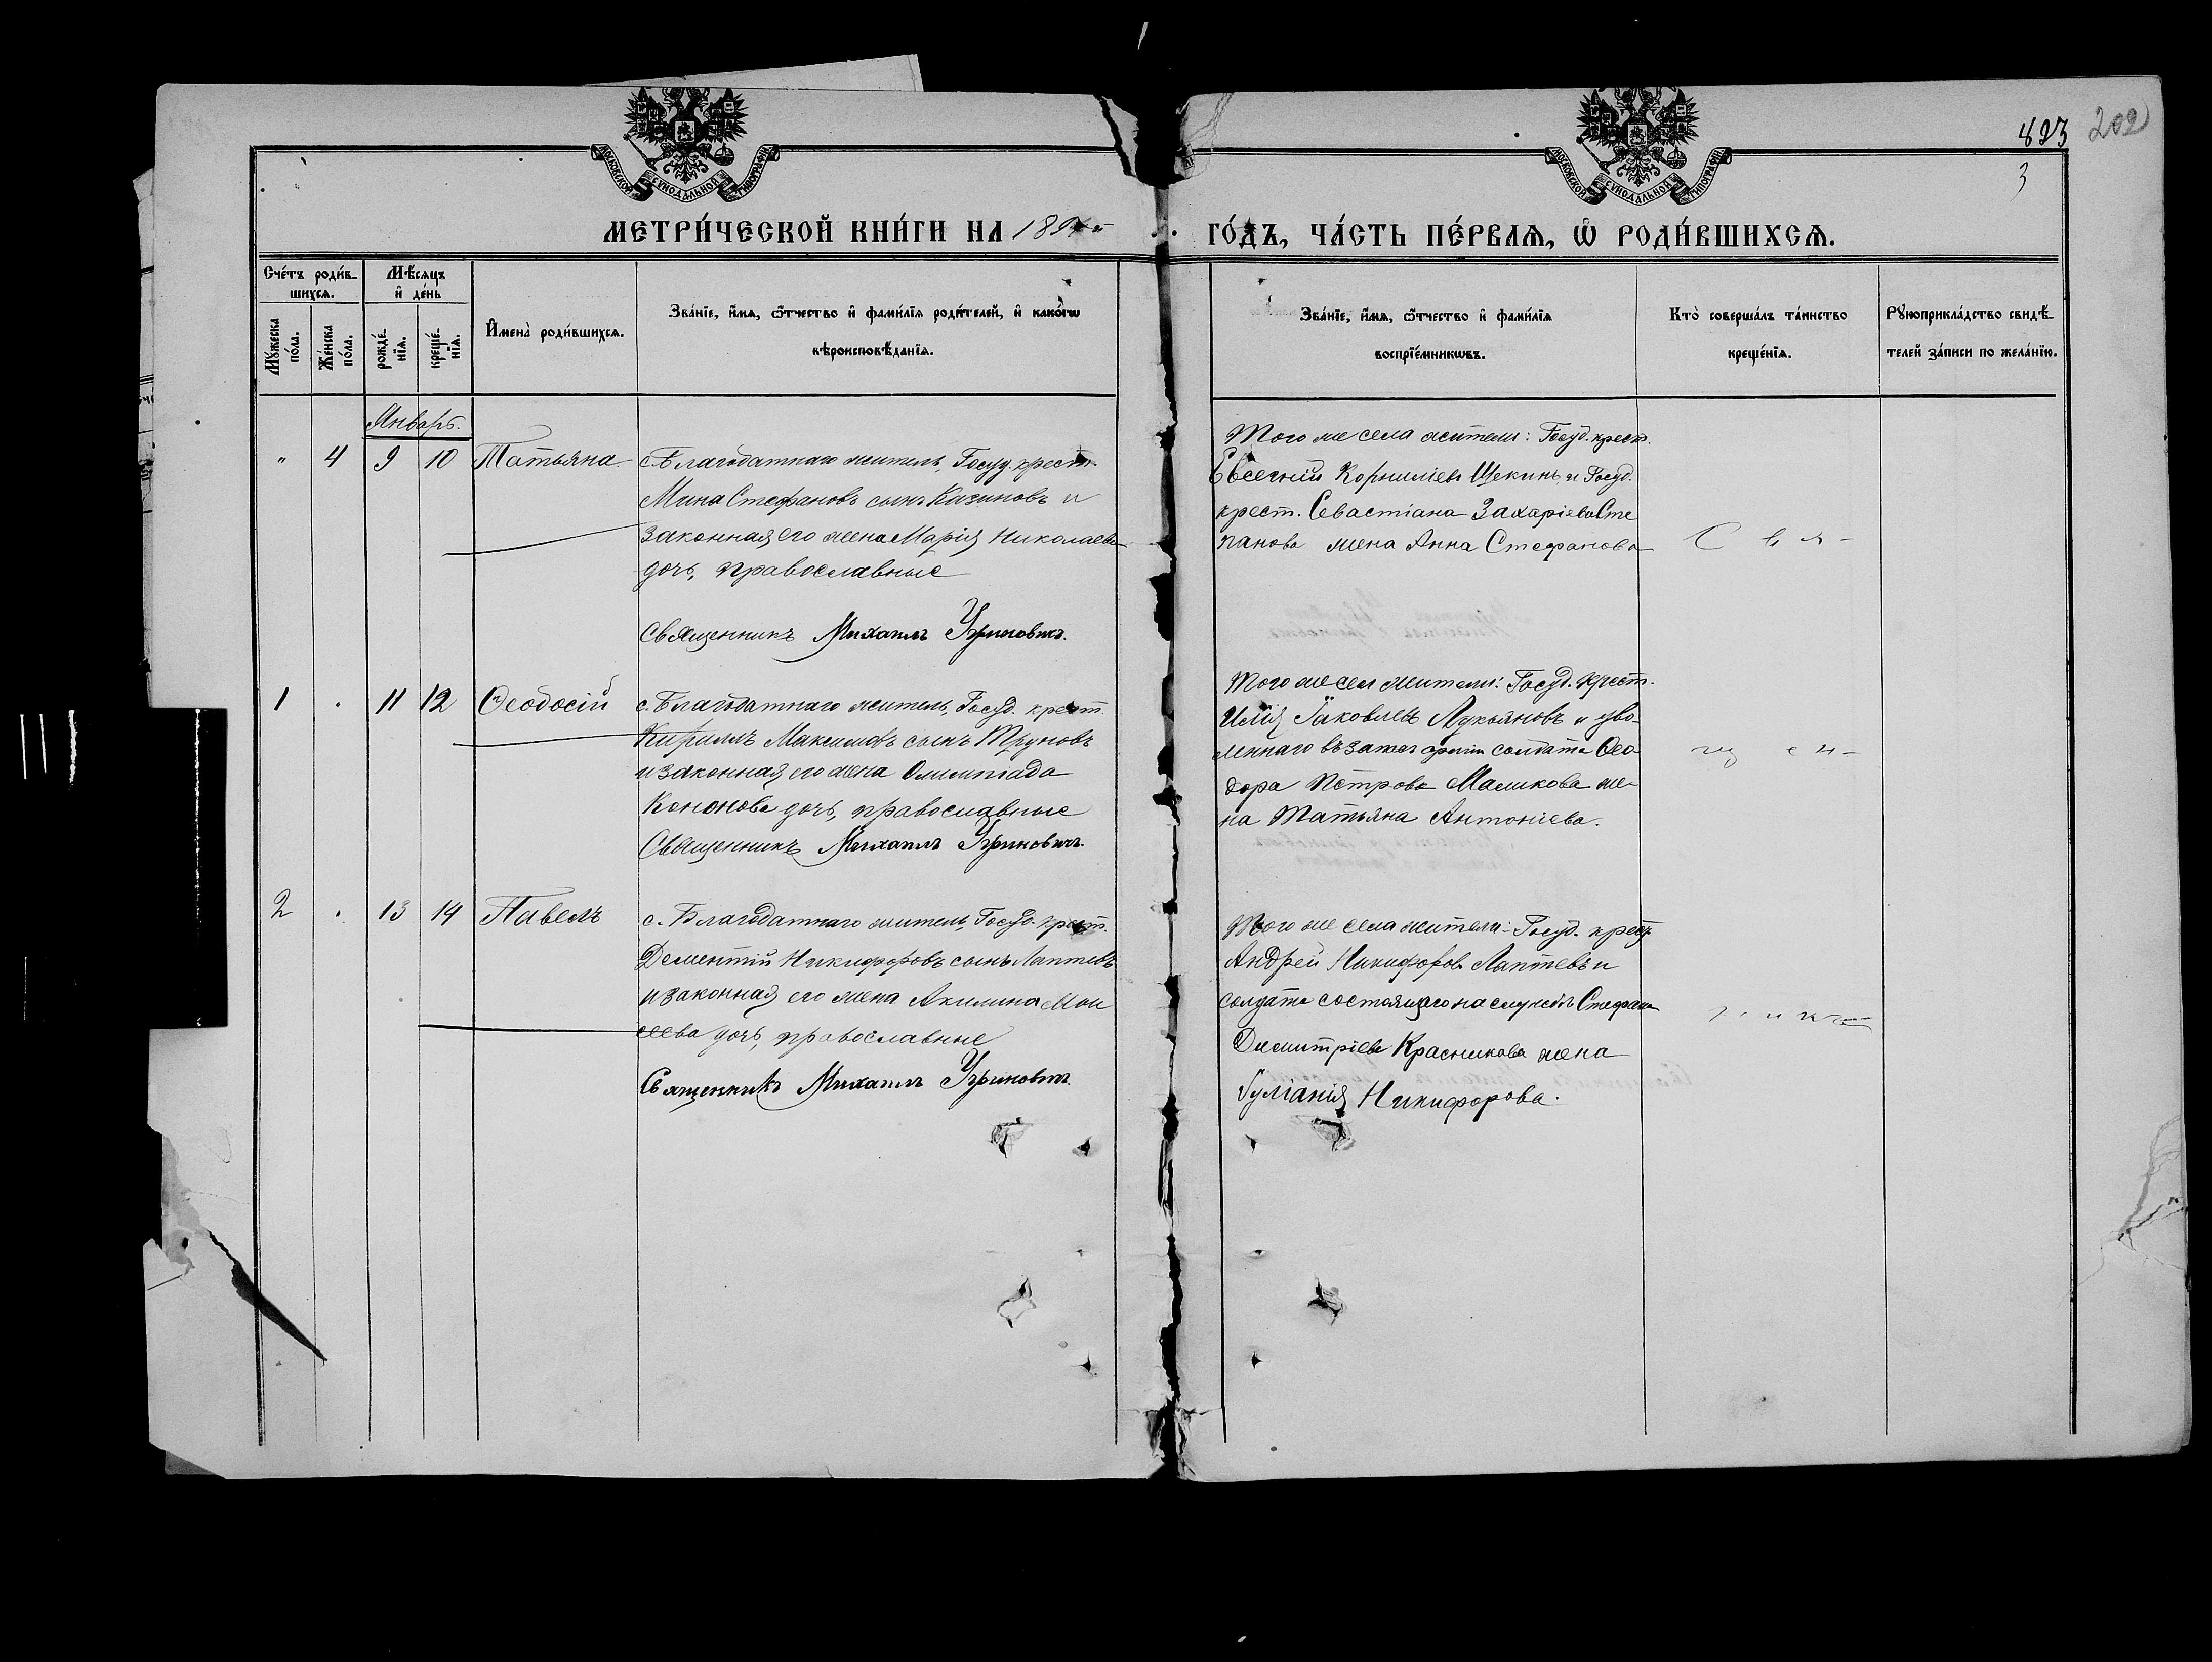 823 202
3
МОСКОВСКОЙ СѴНОДАЛЬНОЙ ТИПОГРАФІИ
МОСКОВСКОЙ СѴНОДАЛЬНОЙ ТИПОГРАФІИ
МЕТРИ́ЧЕСКОЙ КНИ́ГИ НА 189
ГО́ДЪ, ЧА́СТЬ ПЕ́РВАѦ, Ѡ҆ РОДИ́ВШИХСѦ.
Сче́тъ роди́в-
шихсѧ.
Мꙋ́жеска по́ла.
Же́нска по́ла.
Мѣ́сѧцъ и҆ де́нь
рожде́нїѧ.
креще́нїѧ.
И҆мена̀ роди́вшихсѧ.
Зва́нїе, и҆́мѧ, ѻ҆́тчество и҆ фами́лїѧ роди́телей, и҆ како́гѡ
вѣроисповѣ́данїѧ.
Зва́нїе, и҆́мѧ, ѻ҆́тчество и҆ фами́лїѧ
воспрїе́мникѡвъ.
Кто̀ соверша́лъ та́инство
креще́нїѧ.
Рꙋкоприкла́дство свидѣ́-
телей за́писи по жела́нїю.
Январь.
" 4 9 10 Татьяна
с. Благодатнаго житель, Госуд. крест.
Мина Стефановъ сынъ Казиновъ и
законная его жена Марія Николаева
дочь, православные
Священникъ Михаилъ Угриновичъ.
Того же села жители: Госуд. крест.
Евсегній Корниліевъ Щекинъ и Госуд.
крест. Севастіана Захаріева Сте
панова жена Анна Стефанова
С в я -
1 . 11 12 Ѳеодосій
с. Благодатнаго житель, Госуд. крест.
Кириллъ Максимовъ сынъ Труновъ
и законная его жена Олимпіада
Кононова дочь, православные
Священникъ Михаилъ Угриновичъ.
Того же села жители: Госуд. крест.
Илія Іаковлевъ Лукьяновъ и уво-
леннаго въ солдата Ѳео-
дора Петрова Маликова же-
на Татьяна Антоніева.
щ е н -
2 . 13 14 Павелъ
с. Благодатнаго житель, Госуд. крест.
Дементій Никифоровъ сынъ Лаптевъ
и законная его жена Акилина Мои
сеева дочь, православные
Священникъ Михаилъ Угриновичъ.
Того же села жители: Госуд. крест.
Андрей Никифоровъ Лаптевъ и
солдата состоящаго на службѣ Стефана
Димитріева Красникова жена
Іуліанія Никифорова.